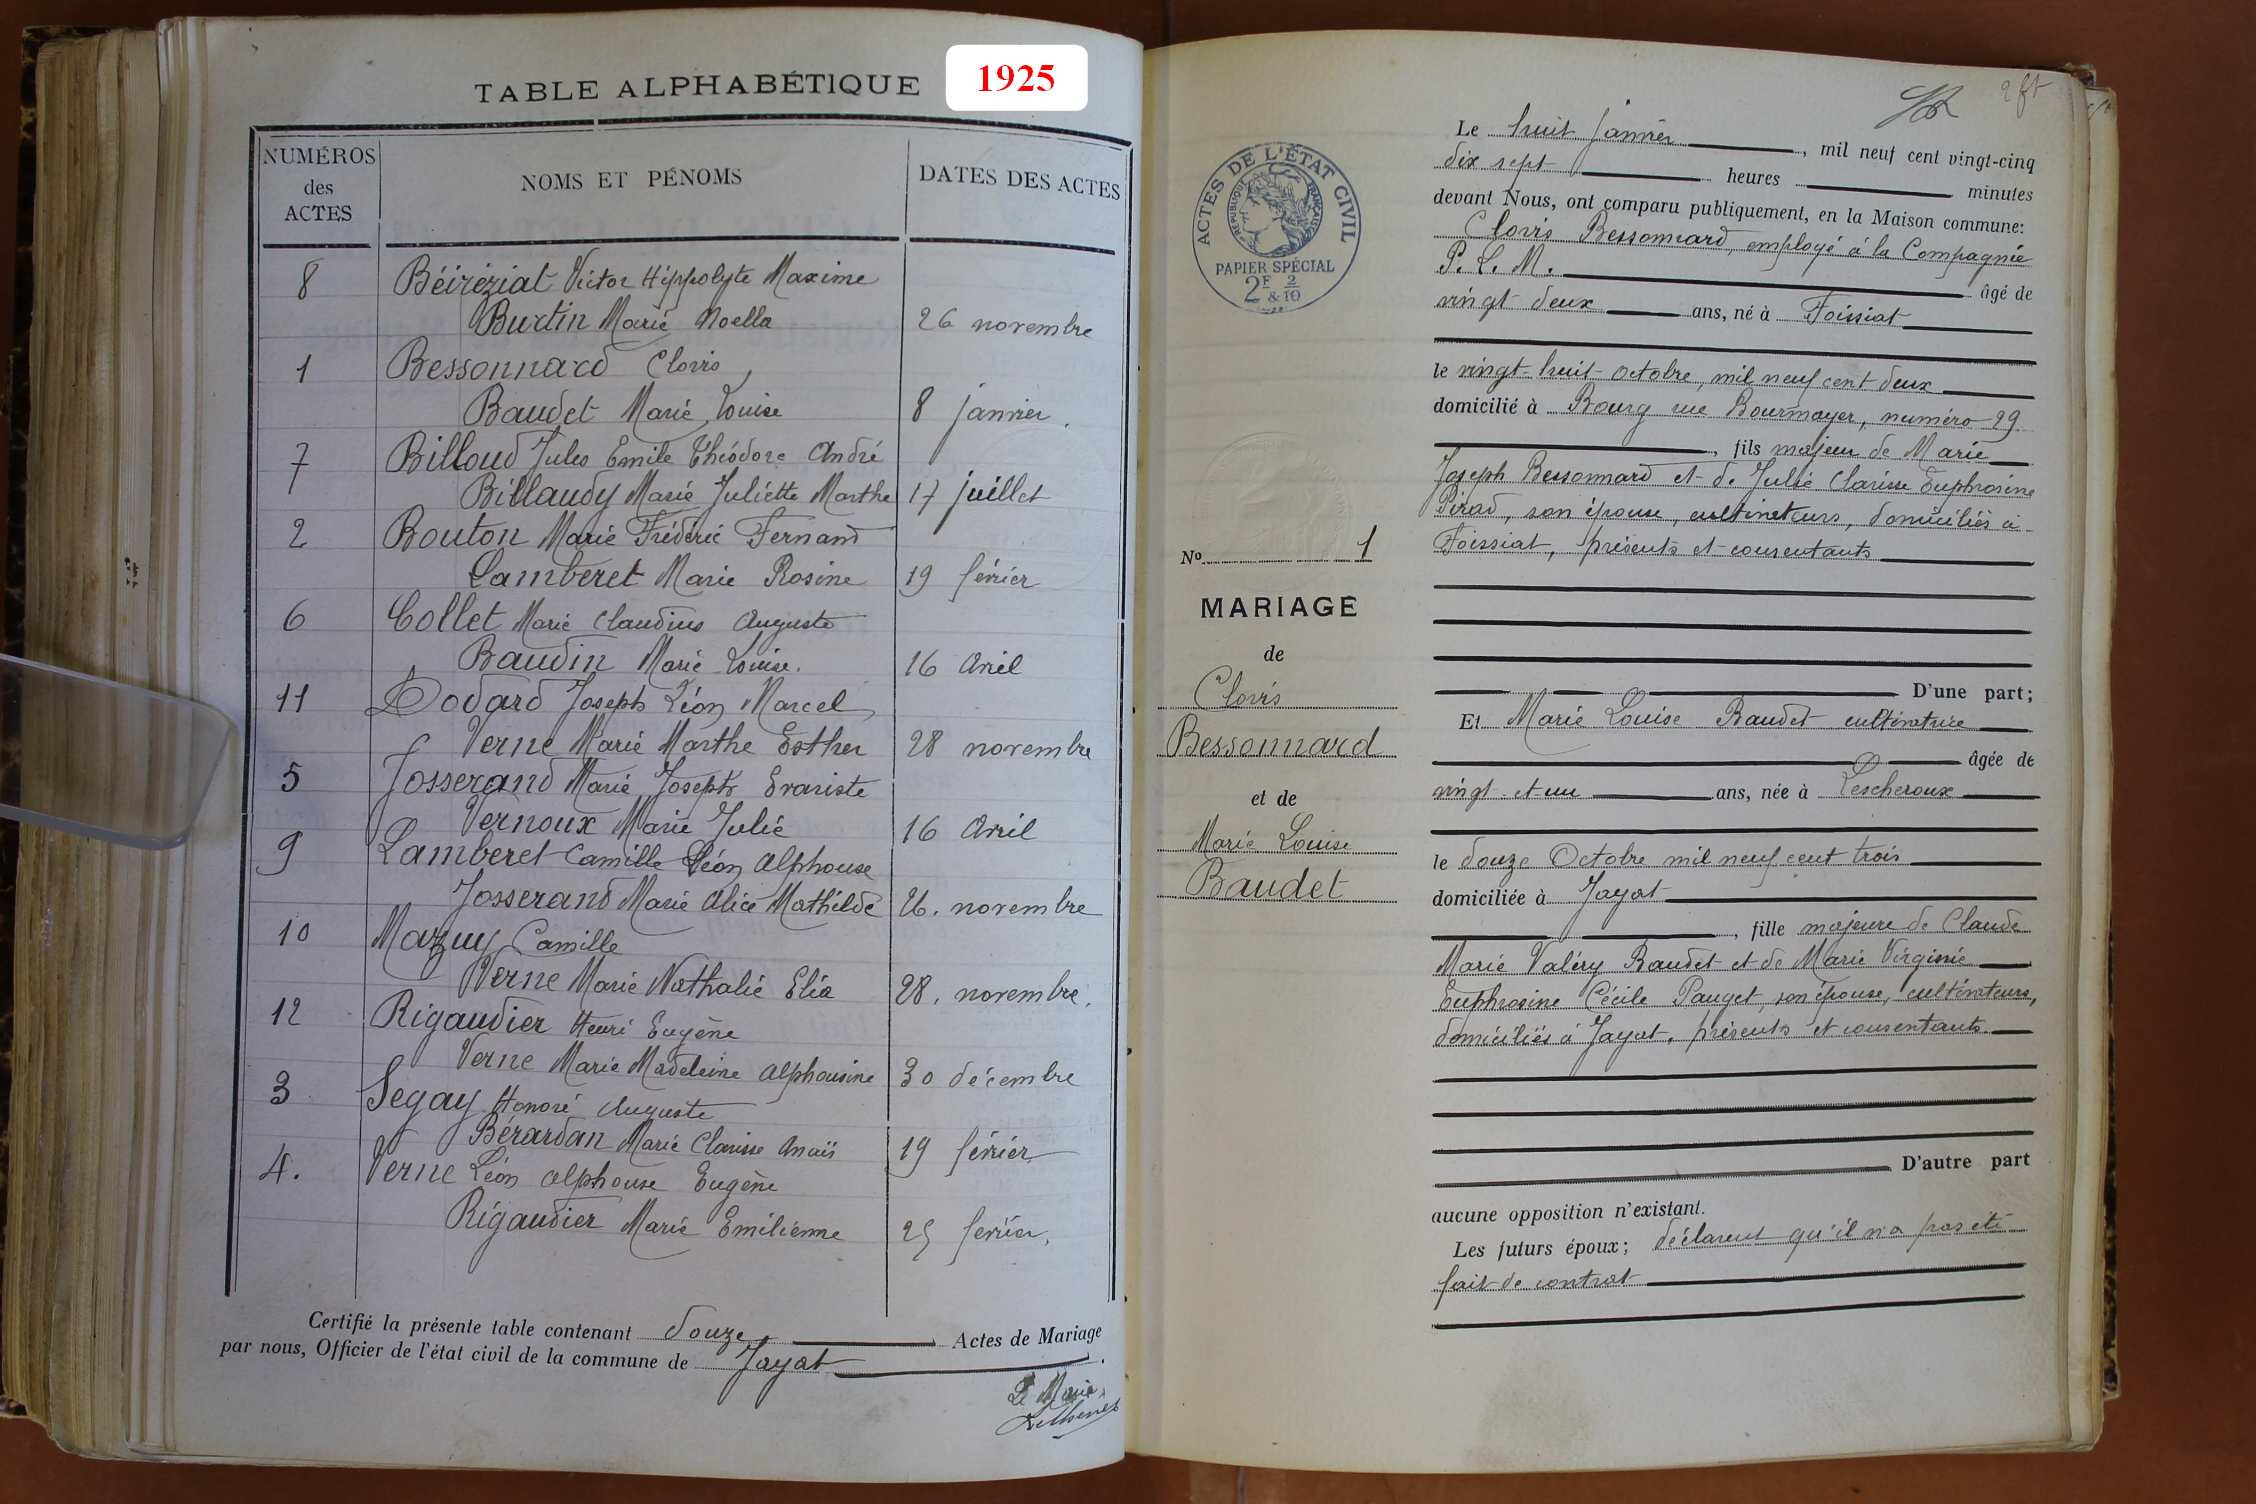 TABLE ALPHABÉTIQUE
1925
NUMÉROS des ACTES
NOMS ET PÉNOMS
DATES DES ACTES
8 Béréziat Victor Hippolyte Maxime
Burtin Marie Noella 26 novembre
1 Bessonnard Clovis
Baudet Marie Louise 8 janvier.
7 Billoud Jules Emile Théodore André
Billaudy Marie Juliette Marthe 17 juillet
2 Bouton Marie Frédéric Fernand
Lamberet Marie Rosine 19 février
6 Collet Marie Claudius Auguste
Baudin Marie Louise. 16 Avril
11 Dodard Joseph Léon Marcel
Verne Marie Marthe Esther 28 novembre
5 Josserand Marie Joseph Evariste
Vernoux Marie Julie 16 Avril
9 Lamberet Camille Léon Alphonse
Josserand Marie Alice Mathilde 26. novembre
10 Mazuy Camille
Verne Marie Nathalie Elia 28. novembre.
12 Rigaudier Henri Eugène
Verne Marie Madeleine Alphonsine 30 décembre
3 Segay Honoré Auguste
Bérardan Marie Clarisse Anaïs 19 février
4. Verne Léon Alphonse Eugène
Rigaudier Marie Emilienne 25 février.
Certifié la présente table contenant douze Actes de Mariage
par nous, Officier de l'état civil de la commune de Jayat.
Le Maire
ACTES DE L'ÉTAT CIVIL
RÉPUBLIQUE FRANÇAISE
PAPIER SPÉCIAL
2F 2/10
&
No 1
MARIAGE
de
Clovis
Bessonnard
et de
Marie Louise
Baudet
Le huit janvier, mil neuf cent vingt-cinq
dix sept heures minutes
devant Nous, ont comparu publiquement, en la Maison commune:
Clovis Bessonnard, employé à la Compagnie
P. L. M. âgé de
vingt deux ans, né à Foissiat
le vingt-huit octobre, mil neuf cent deux
domicilié à Bourg rue Bourmayer, numéro 29
, fils majeur de Marie
Joseph Bessonnard et de Julie Clarisse Euphrosine
Pirad, son épouse, cultivateurs, domiciliés à
Foissiat, présents et consentants
D'une part;
Et Marie Louise Baudet cultivatrice
âgée de
vingt et un ans, née à Lescheroux
le douze Octobre mil neuf cent trois
domiciliée à Jayat
, fille majeure de Claude
Marie Valéry Baudet et de Marie Virginie
Euphrosine Cécile Pauget, son épouse, cultivateurs,
domiciliés à Jayat, présents et consentants.
D'autre part
aucune opposition n'existant.
Les futurs époux; déclarent qu'il n'a pas été
fait de contrat